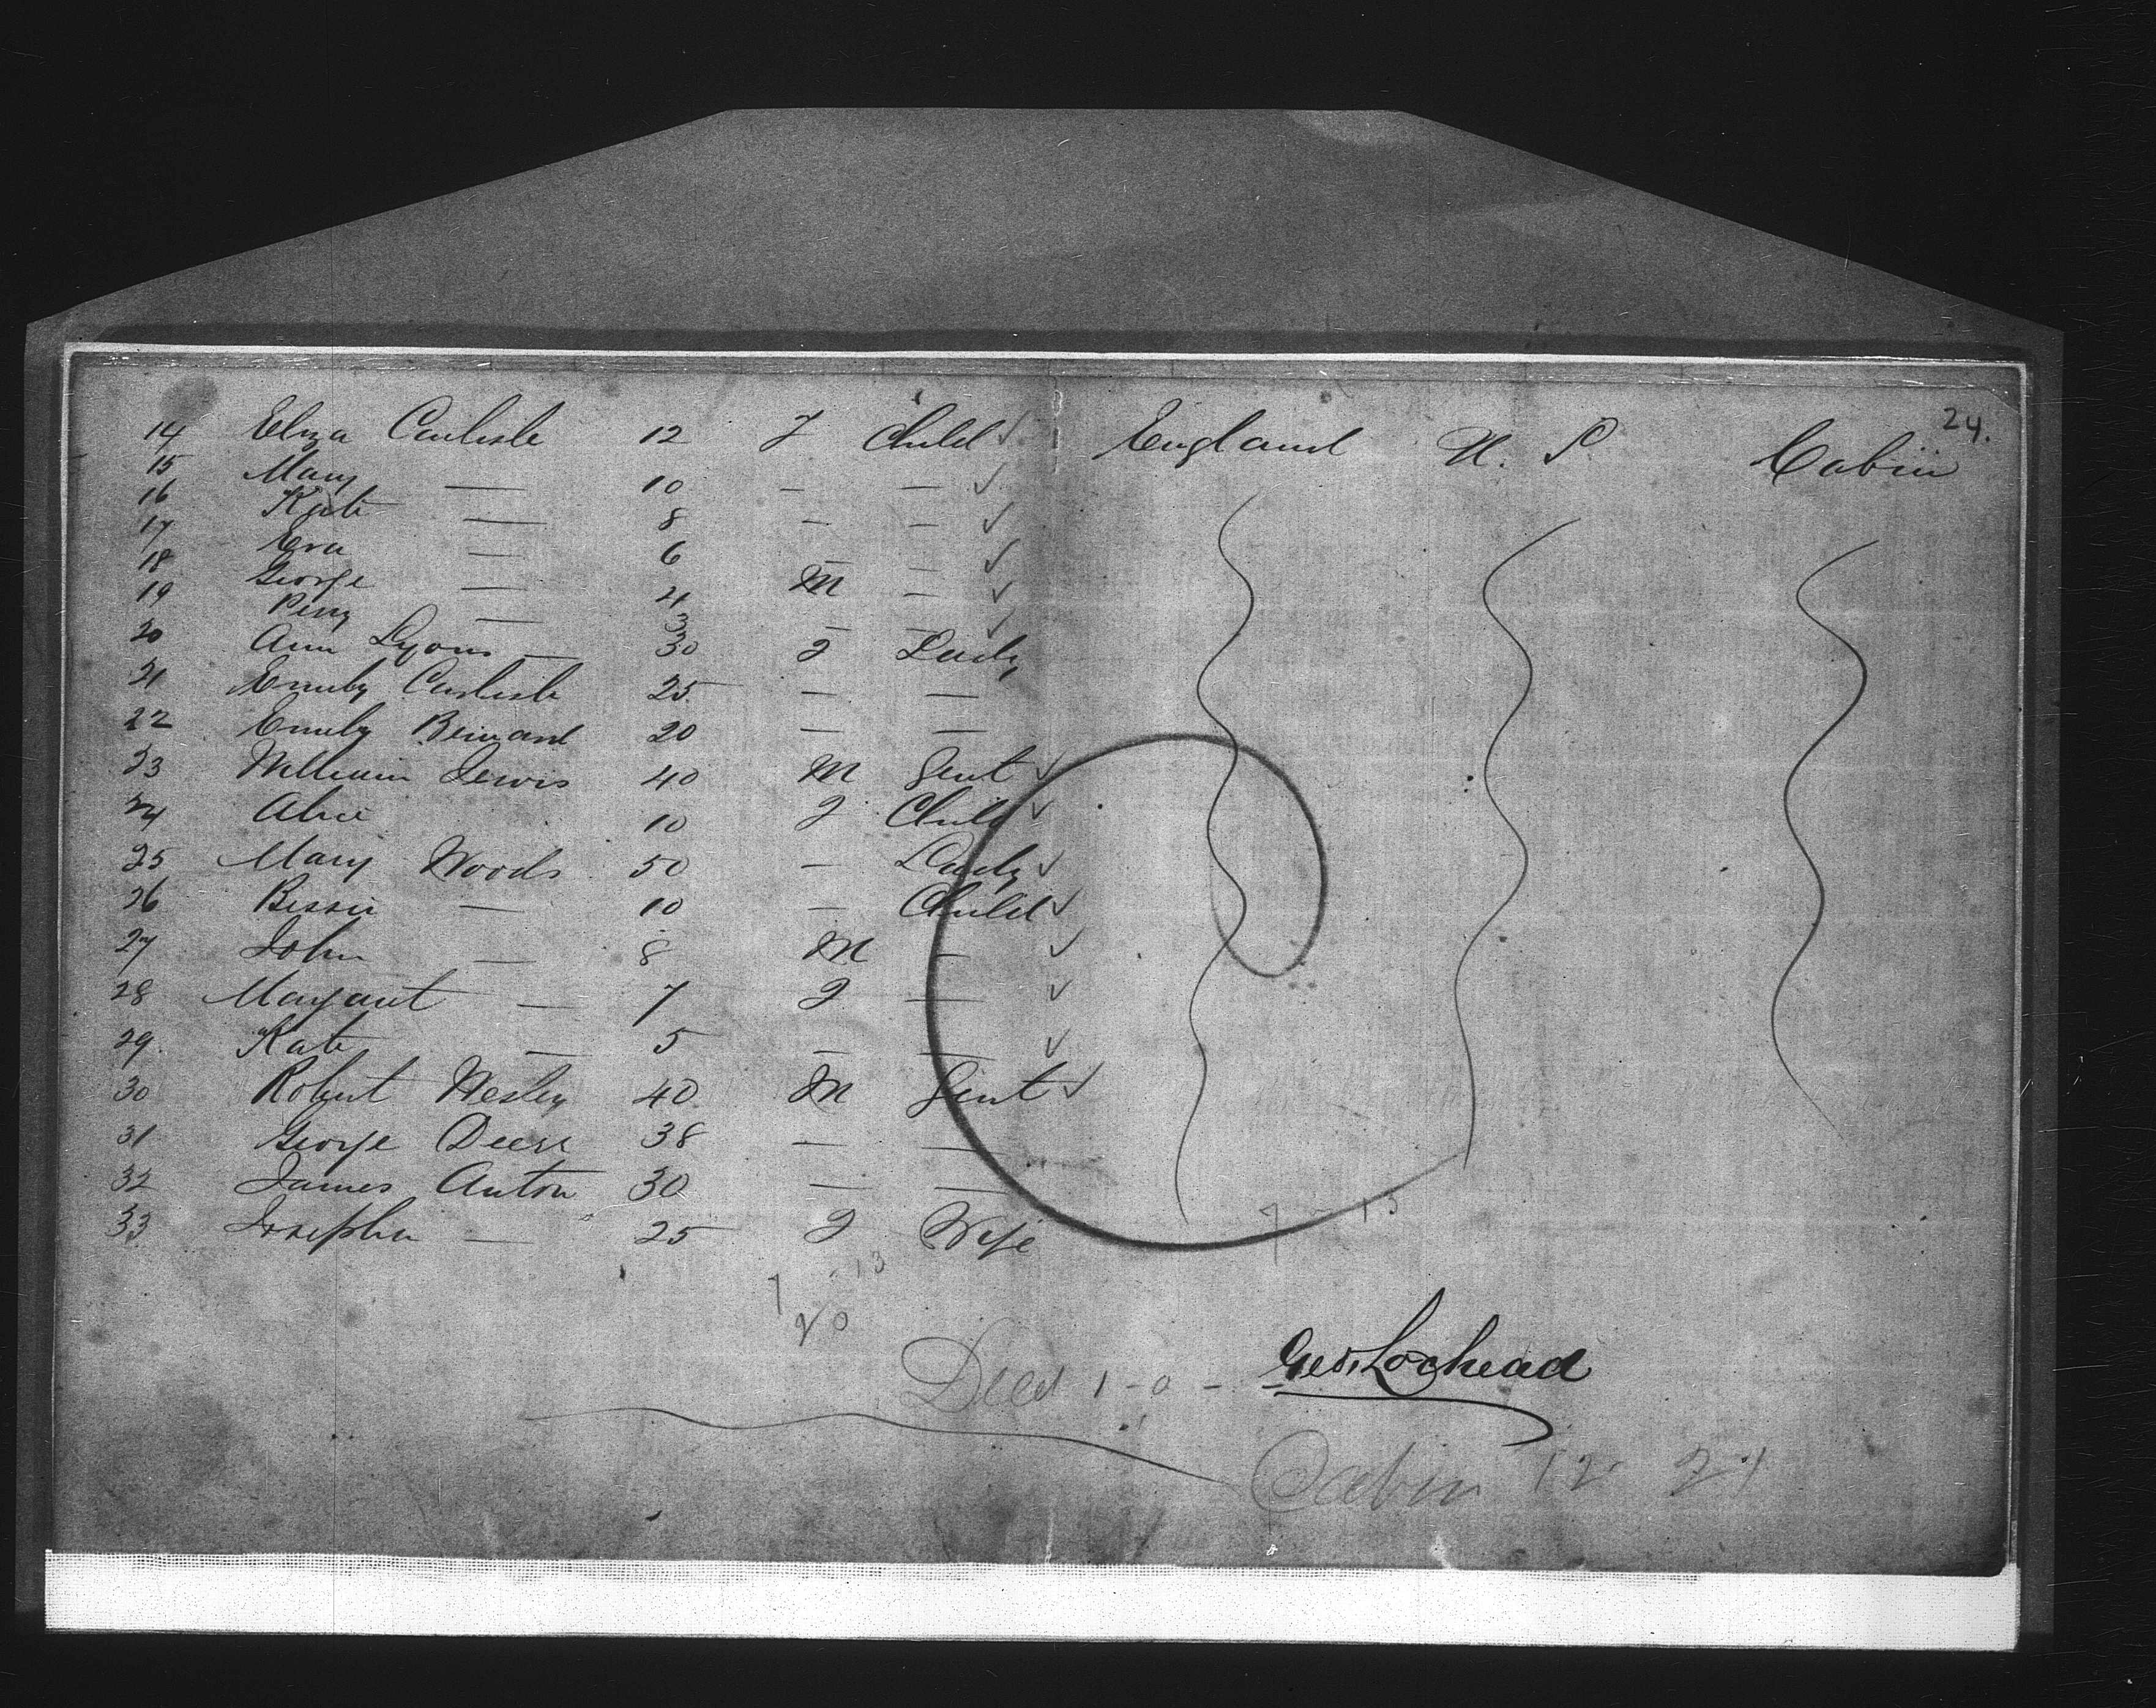 24.
14 Eliza Carlisle 12 F Child ✓ England U. S. Cabin
15 Mary — 10 — — ✓
16 Kate — 8 — — ✓
17 Eva — 6 — — ✓
18 George — 4 M — ✓
19 Percy — 3 — — ✓
20 Ann Lyons — 30 F Lady
21 Emily Carlisle 25 — —
22 Emily 20 — —
23 William Lewis 40 M Gent ✓
24 Alice 10 F Child ✓
25 Mary Woods 50 — Lady ✓
26 Bessie — 10 — Child ✓
27 John — 8 M — ✓
28 Margaret — 7 F — ✓
29 Kate — 5 — — ✓
30 Robert Wesley 40 M Gent ✓
31 George Deere 38 — —
32 James Anton 30 — —
33 Josepha — 25 F Wife
7 - 13
7 - 13
20
Died 1 - 0 - Geo. Lochead
Cabin 12 21